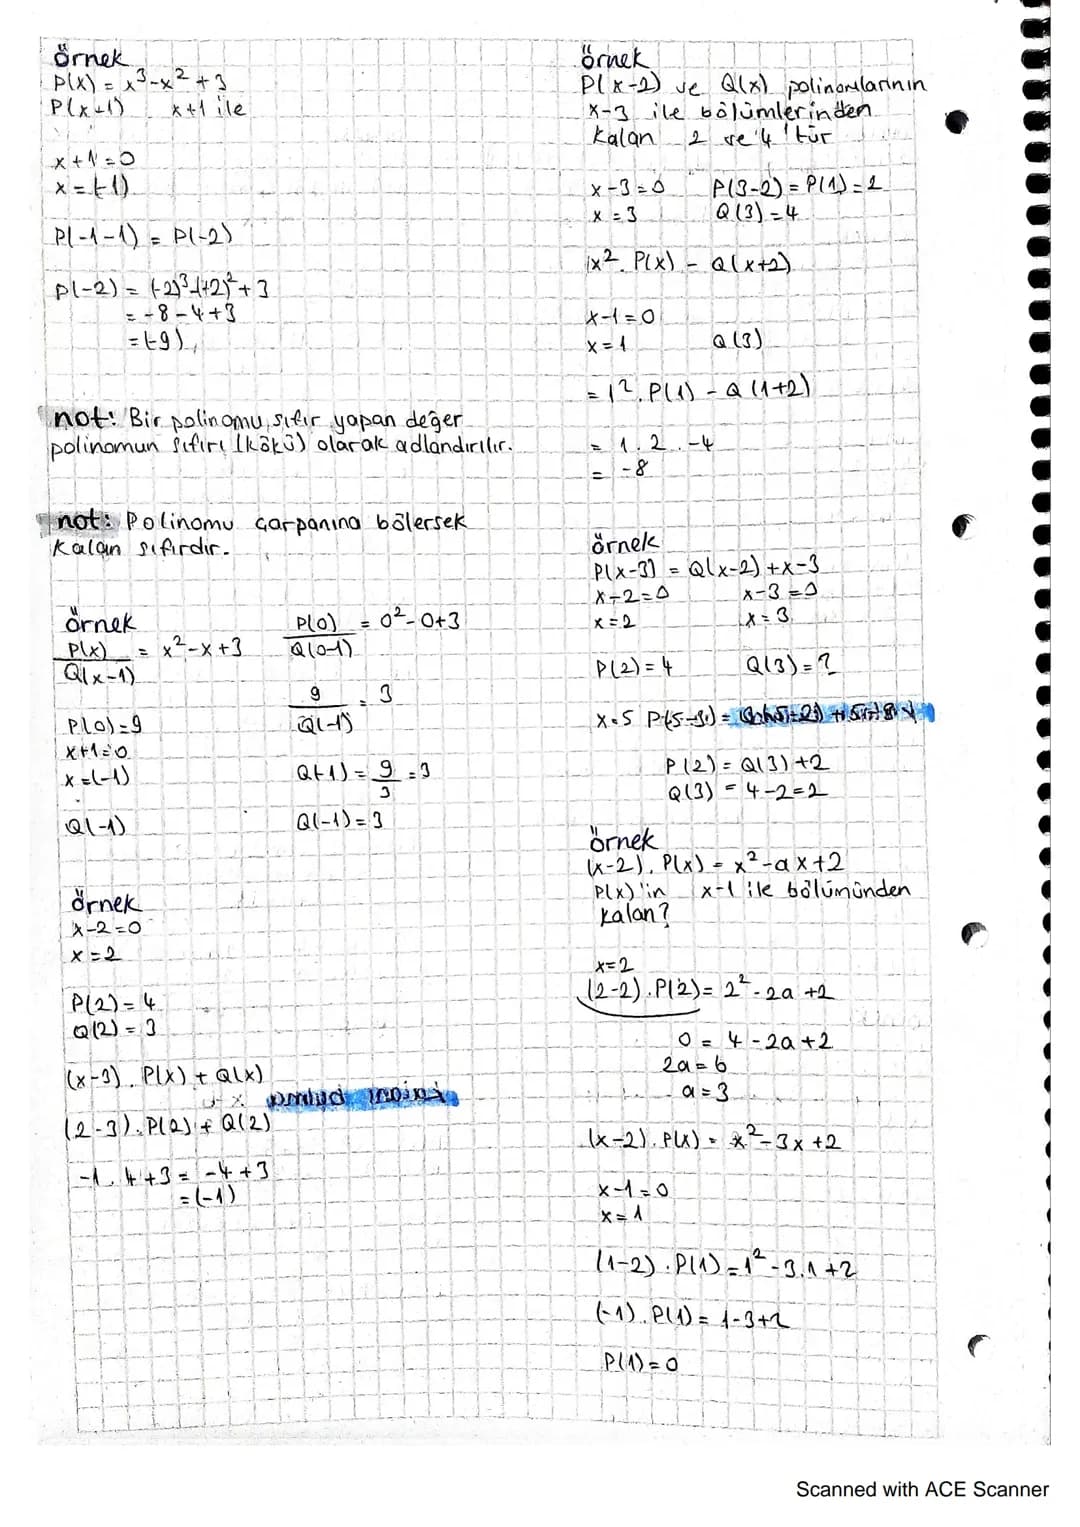 örnek
P(x) = x³-x²+3
P(x-1) x+1 ile
x+1=0
x=(-1)
P(-1-1) = P(-2)
P(-2) = (-2)³-(+2)²+3
= -8-4+3
=(-9)
not: Bir polinomu sıfır yapan değer
polinomun sıfırı (kökü) olarak adlandırılır.
not: Polinomu çarpanına bölersek
kalan sıfırdır.
örnek
P(x)/Q(x-1) = x²-x+3
P(0)=9
x+1=0
x=(-1)
Q(-1)
P(0)/Q(0-1) = 0²-0+3
9/Q(-1) = 3
Q(-1) = 9/3 = 3
Q(-1)=3
örnek
x-2=0
x=2
P(2)=4
Q(2)=3
(x-3). P(x) + Q(x)
(2-3). P(2) + Q(2)
-1. 4+3 = -4+3
=(-1)
örnek
P(x-2) ve Q(x) polinomlarının
x-3 ile bölümlerinden
kalan 2 ve 4'tür
x-3=0 P(3-2)=P(1)=2
x=3 Q(3)=4
x². P(x) - Q(x+2)
x-1=0
x=1 Q(3)
= 1². P(1) - Q(1+2)
= 1.2.-4
= -8
örnek
P(x-3) = Q(x-2)+x-3
x-2=0 x-3=0
x=2 x=3
P(2)=4 Q(3)=?
x=5 P(5-3)=
P(2)= Q(3)+2
Q(3) = 4-2=2
örnek
(x-2). P(x) = x²-ax+2
P(x)'in x-1 ile bölümünden
kalan?
x=2
(2-2). P(2)= 2²-2a+2
0 = 4-2a+2
2a=6
a=3
(x-2). P(x) = x²-3x+2
x-1=0
x=1
(1-2). P(1)=1²-3.1+2
(-1). P(1)= 1-3+2
P(1)=0
Scanned with ACE Scanner